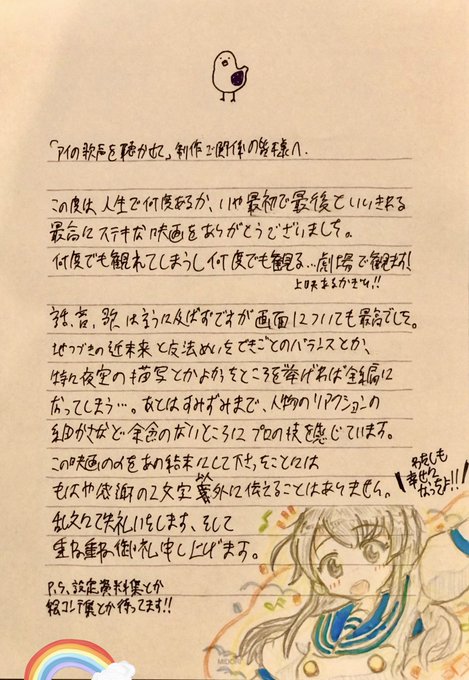 「アイの歌声を聴かせて」制作ご関係の皆様へ.
この度は、人生で何度あるか、いや最初で最後といいきれる
最高にステキな映画をありがとうございました。
何度でも観れてしまうし何度でも観る…劇場で観ます!
上映あるかぎり!!
話、音、歌は言うに及ばずですが画面についても最高でした。
地つづきの近未来と魔法めいたできごとのバランスとか、
特に夜空の描写とかよかったところを挙げれば全編に
なってしまう…。あとはすみずみまで、人物のリアクションの
細かさなど余念のないところにプロの技を感じています。
この映画の〆をあの結末にして下さったことには
もはや感謝の2文字以外に伝えることはありません。
乱文にて失礼いたします、そして
重ね重ね御礼申し上げます。
わたしも
幸せに
なったよ!!
P.S. 設定資料集とか
絵コンテ集とか待ってます!!
MIDORI